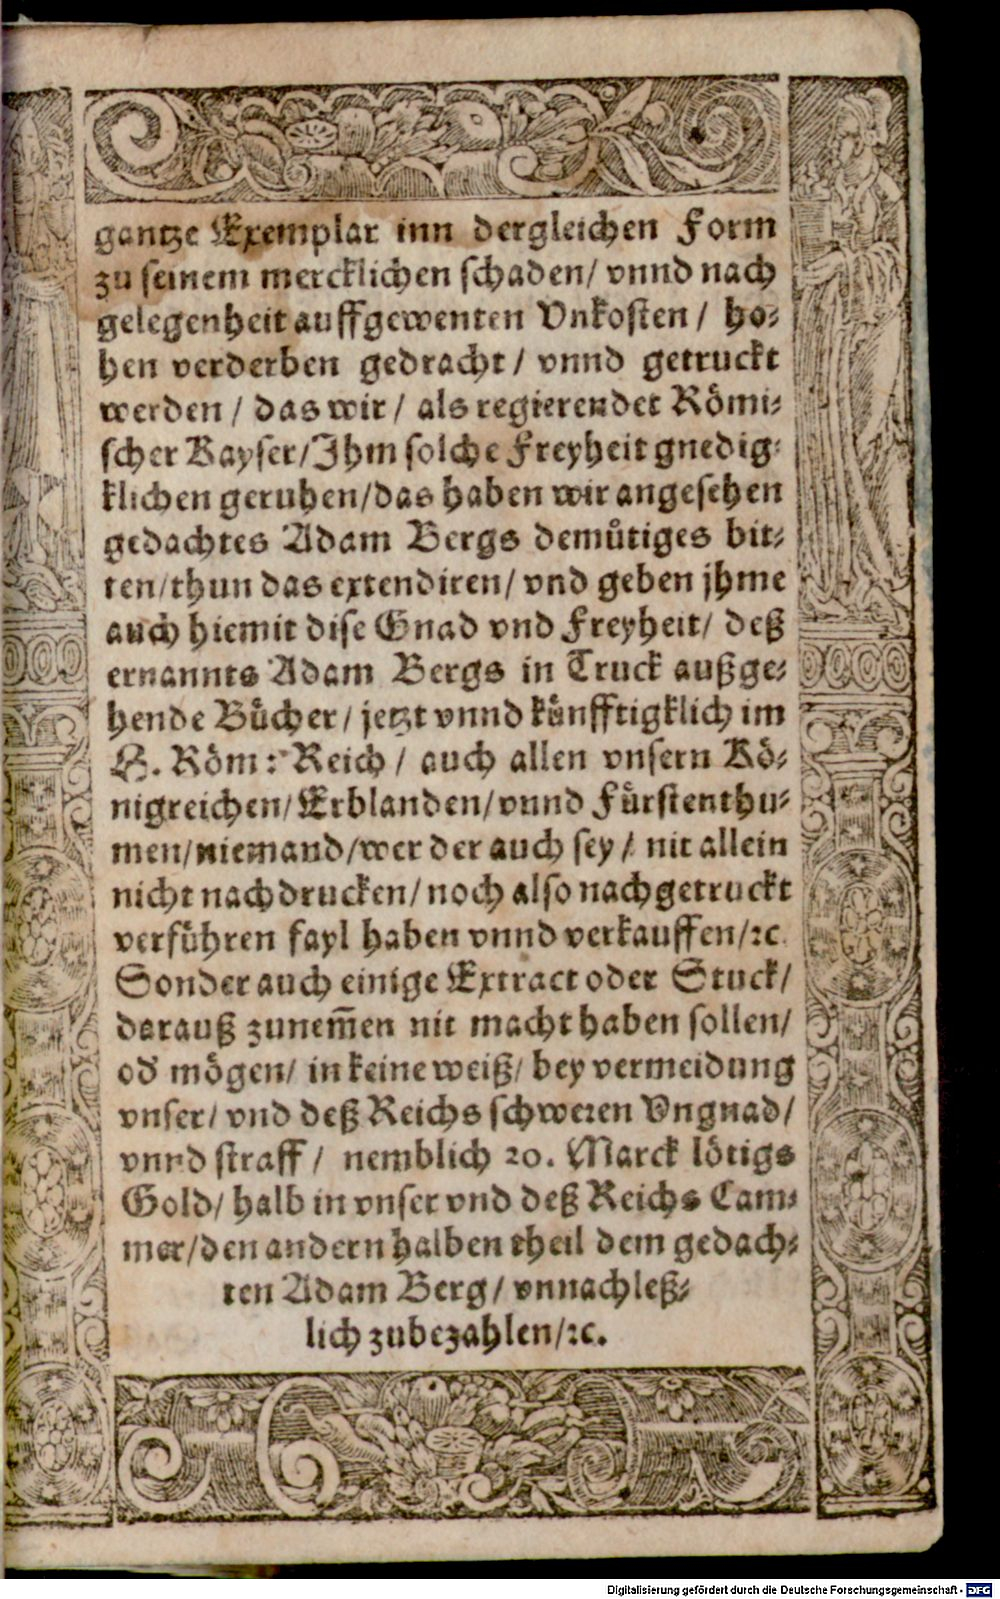 gantze Exemplar inn dergleichen Form
zu seinem mercklichen schaden/ vnnd nach
gelegenheit auffgewenten Vnkosten / ho⸗
hen verderben gedracht / vnnd getruckt
werden / das wir / als regierender Römi⸗
scher Kayser/Ihm solche Freyheit gnedig⸗
klichen geruhen/das haben wir angesehen
gedachtes Adam Bergs demuͤtiges bit⸗
ten/thun das extendiren/ vnd geben jhme
auch hiemit dise Gnad vnd Freyheit/ deß
ernannts Adam Bergs in Truck außge⸗
hende Buͤcher / jetzt vnnd kuͤnfftigklich im
H. Röm: Reich / auch allen vnsern Kö⸗
nigreichen/Erblanden/vnnd Fuͤrstenthu⸗
men/niemand/wer der auch sey / nit allein
nicht nachdrucken/ noch also nachgetruckt
verfuͤhren fayl haben vnnd verkauffen/ꝛc.
Sonder auch einige Extract oder Stuck/
darauß zunem̃en nit macht haben sollen/
od' mögen/ in keine weiß/ bey vermeidung
vnser/ vnd deß Reichs schweren Vngnad/
vnnd straff / nemblich 20. Marck lötigs
Gold/ halb in vnser vnd deß Reichs Cam⸗
mer/den andern halben theil dem gedach⸗
ten Adam Berg/ vnnachleß⸗
lich zubezahlen/ꝛc.
Digitalisierung gefördert durch die Deutsche Forschungsgemeinschaft - DFG